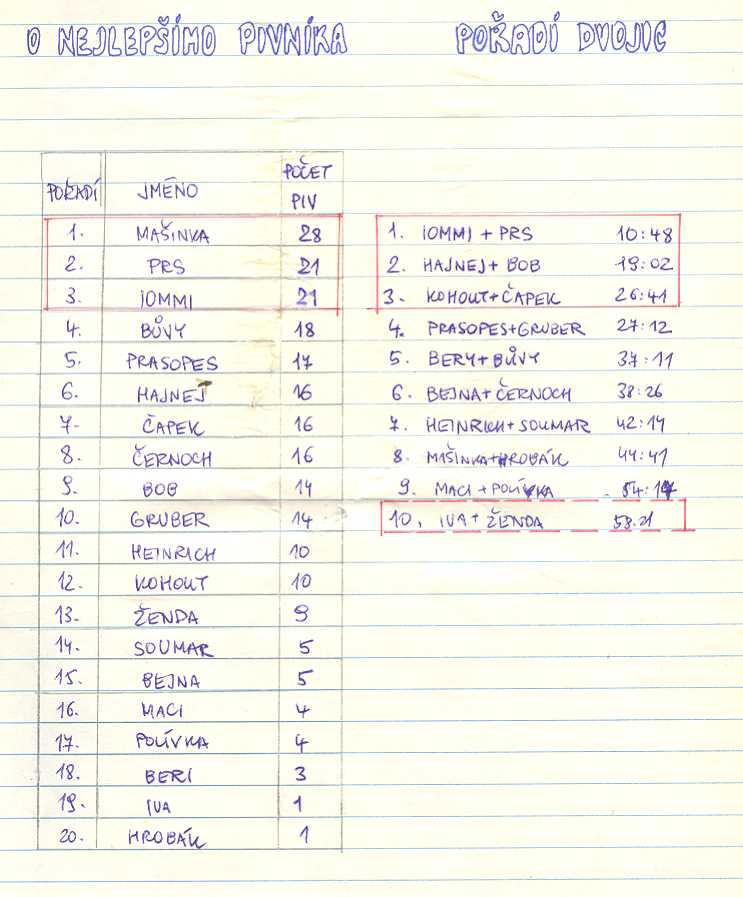 O NEJLEPŠÍMO PIVNÍKA
POŘADÍ JMÉNO POČET PIV
1. MAŠINKA 28
2. PRS 21
3. IOMMI 21
4. BŮVY 18
5. PRASOPES 17
6. HAJNEJ 16
7. ČAPEK 16
8. ČERNOCH 16
9. BOB 14
10. GRUBER 14
11. HEINRICH 10
12. KOHOUT 10
13. ŽENDA 9
14. SOUMAR 5
15. BEJNA 5
16. MACI 4
17. POLÍVKA 4
18. BERI 3
19. IVA 1
20. HROBÁK 1
POŘADÍ DVOJIC
1. IOMMI + PRS 10:48
2. HAJNEJ + BOB 19:02
3. KOHOUT+ČAPEK 26:41
4. PRASOPES+GRUBER 27:12
5. BERY+BŮVY 37:11
6. BEJNA+ČERNOCH 38:26
7. HEINRICH+SOUMAR 42:14
8. MAŠINKA+HROBÁK 44:41
9. MACI + POLÍVKA
10. IVA + ŽENDA 58.21